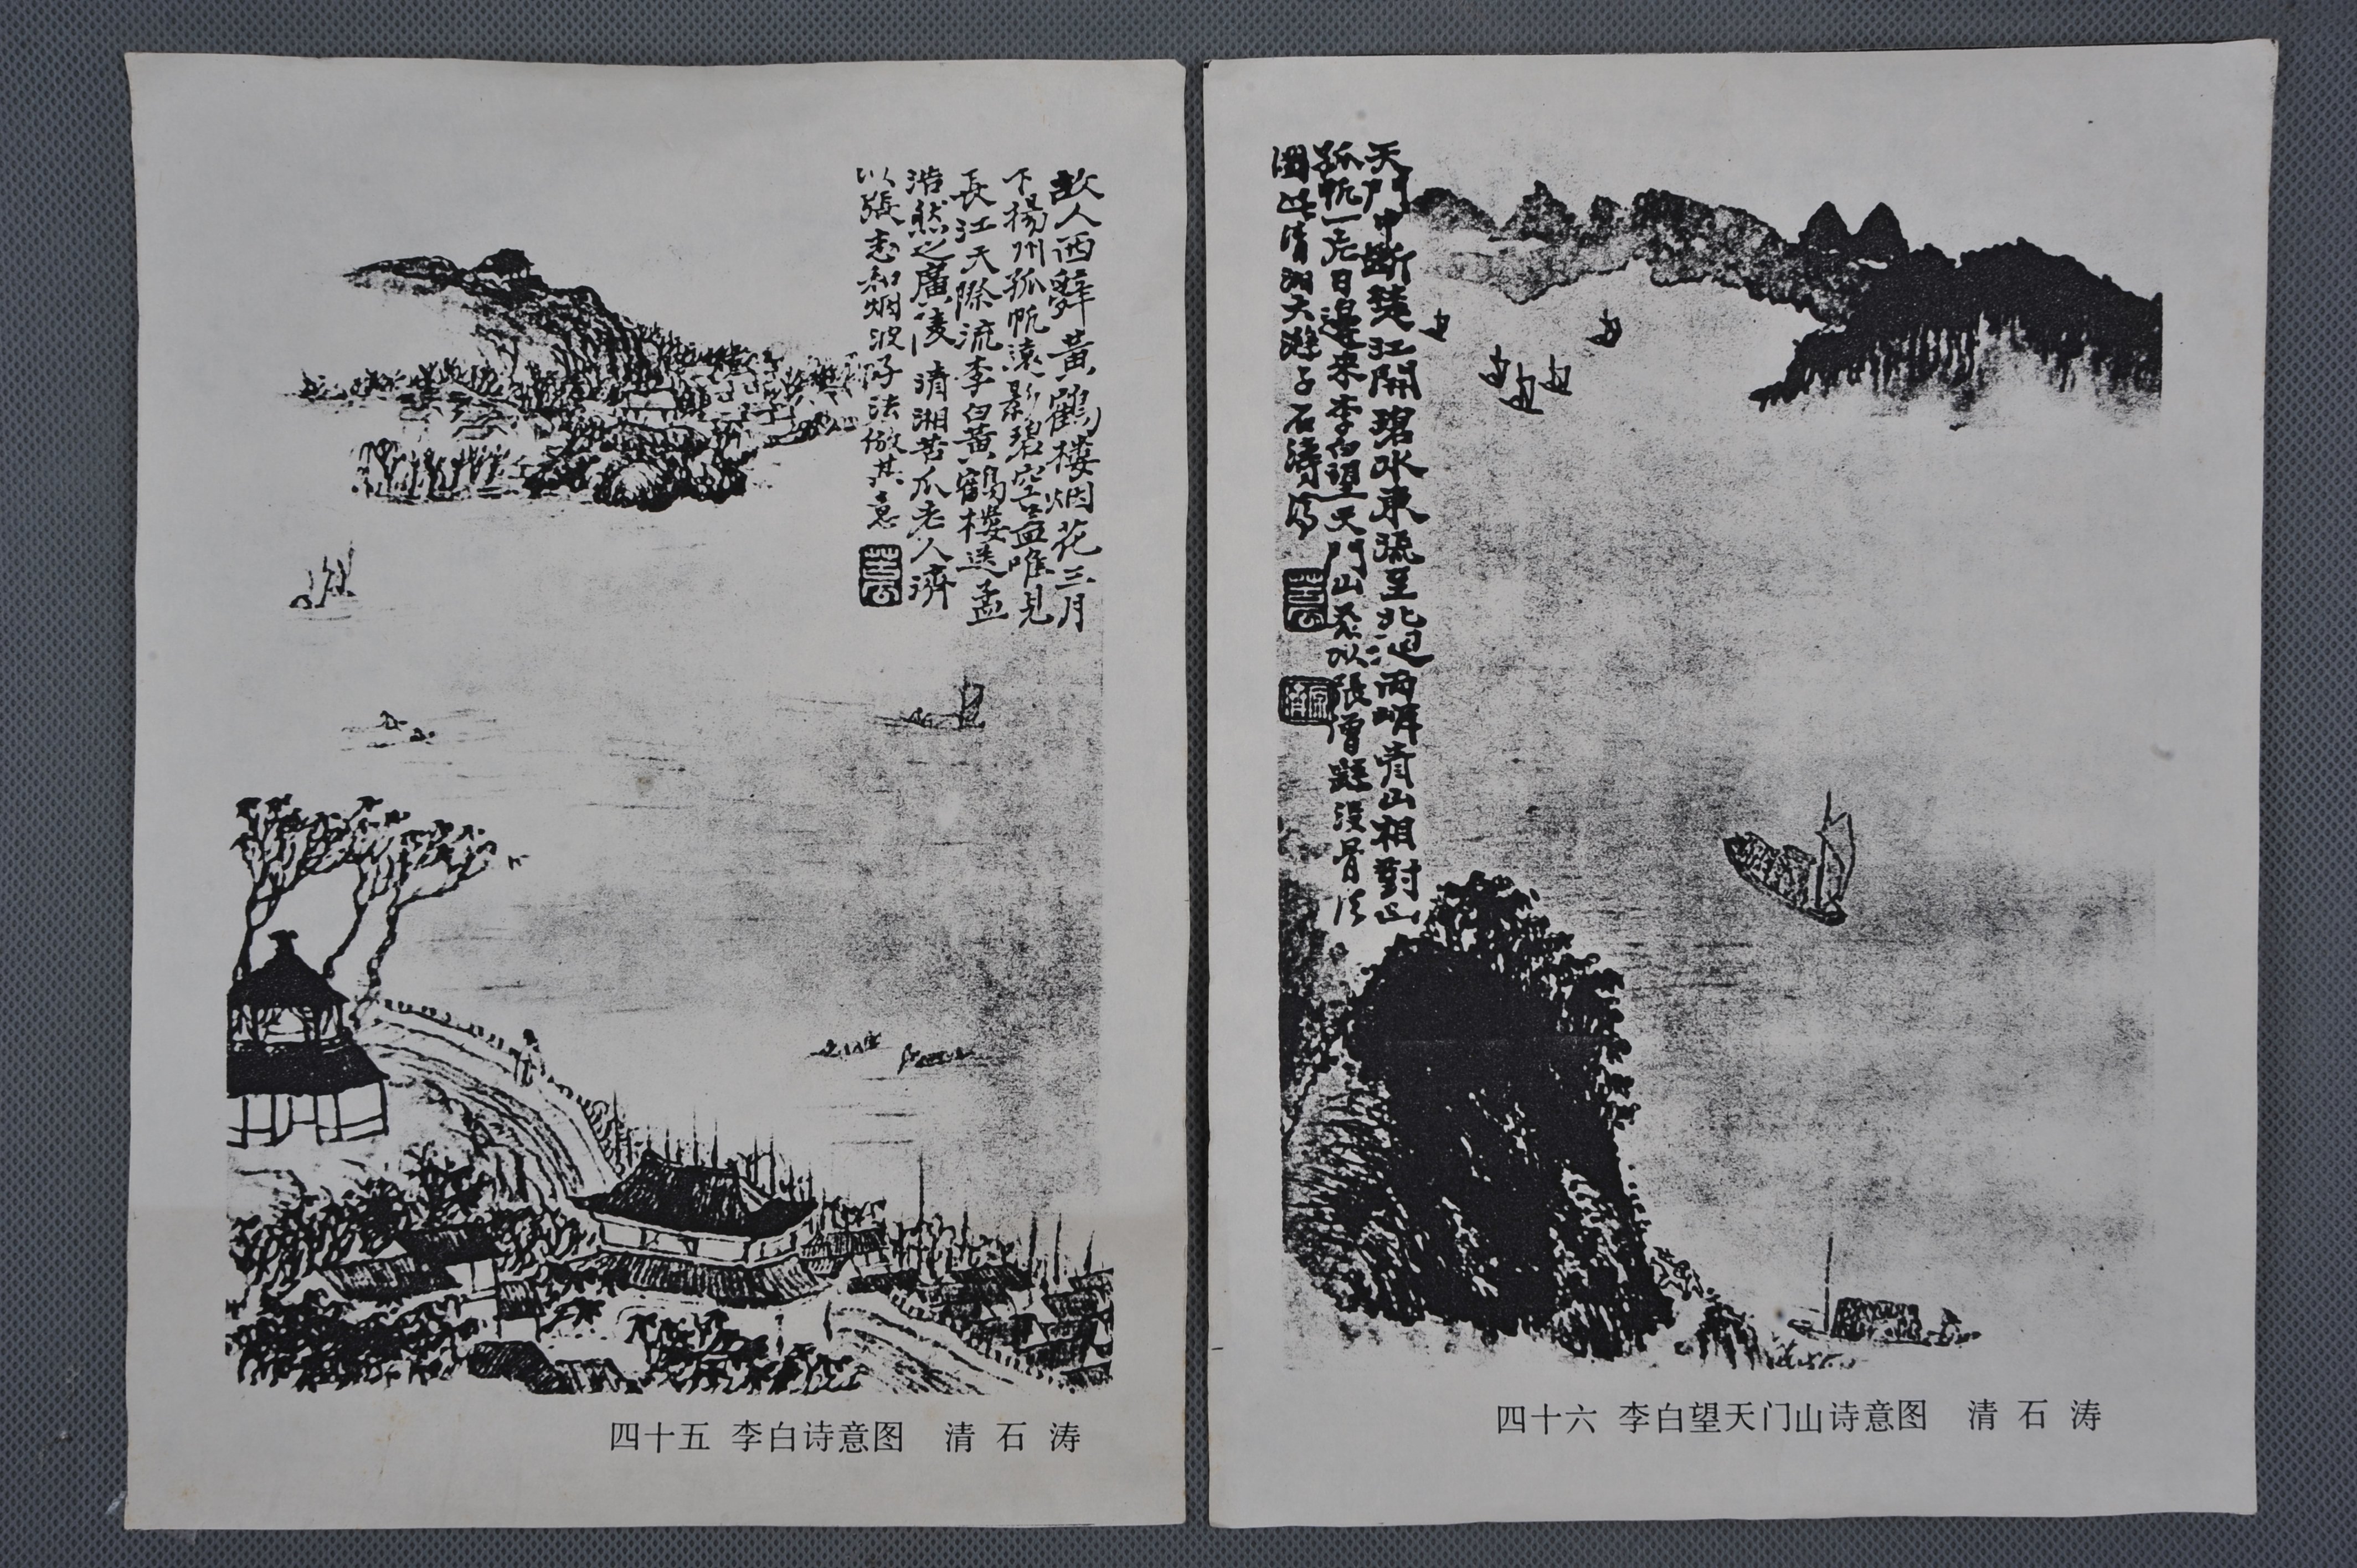 故人西辤黄鶴楼烟花三月
下揚州孤帆遠影碧空盡唯見
長江天際流李白黄鶴樓送孟
浩然之廣陵 清湘苦瓜老人濟
以張志和烟波子法倣其意
四十五 李白诗意图 清 石 涛
天門中斷楚江開碧水東流至北迴兩岸青山相對出
孤帆一片日邊來李白望天門山 以張僧繇沒骨法
圖此清湘大滌子石濤
四十六 李白望天门山诗意图 清 石 涛